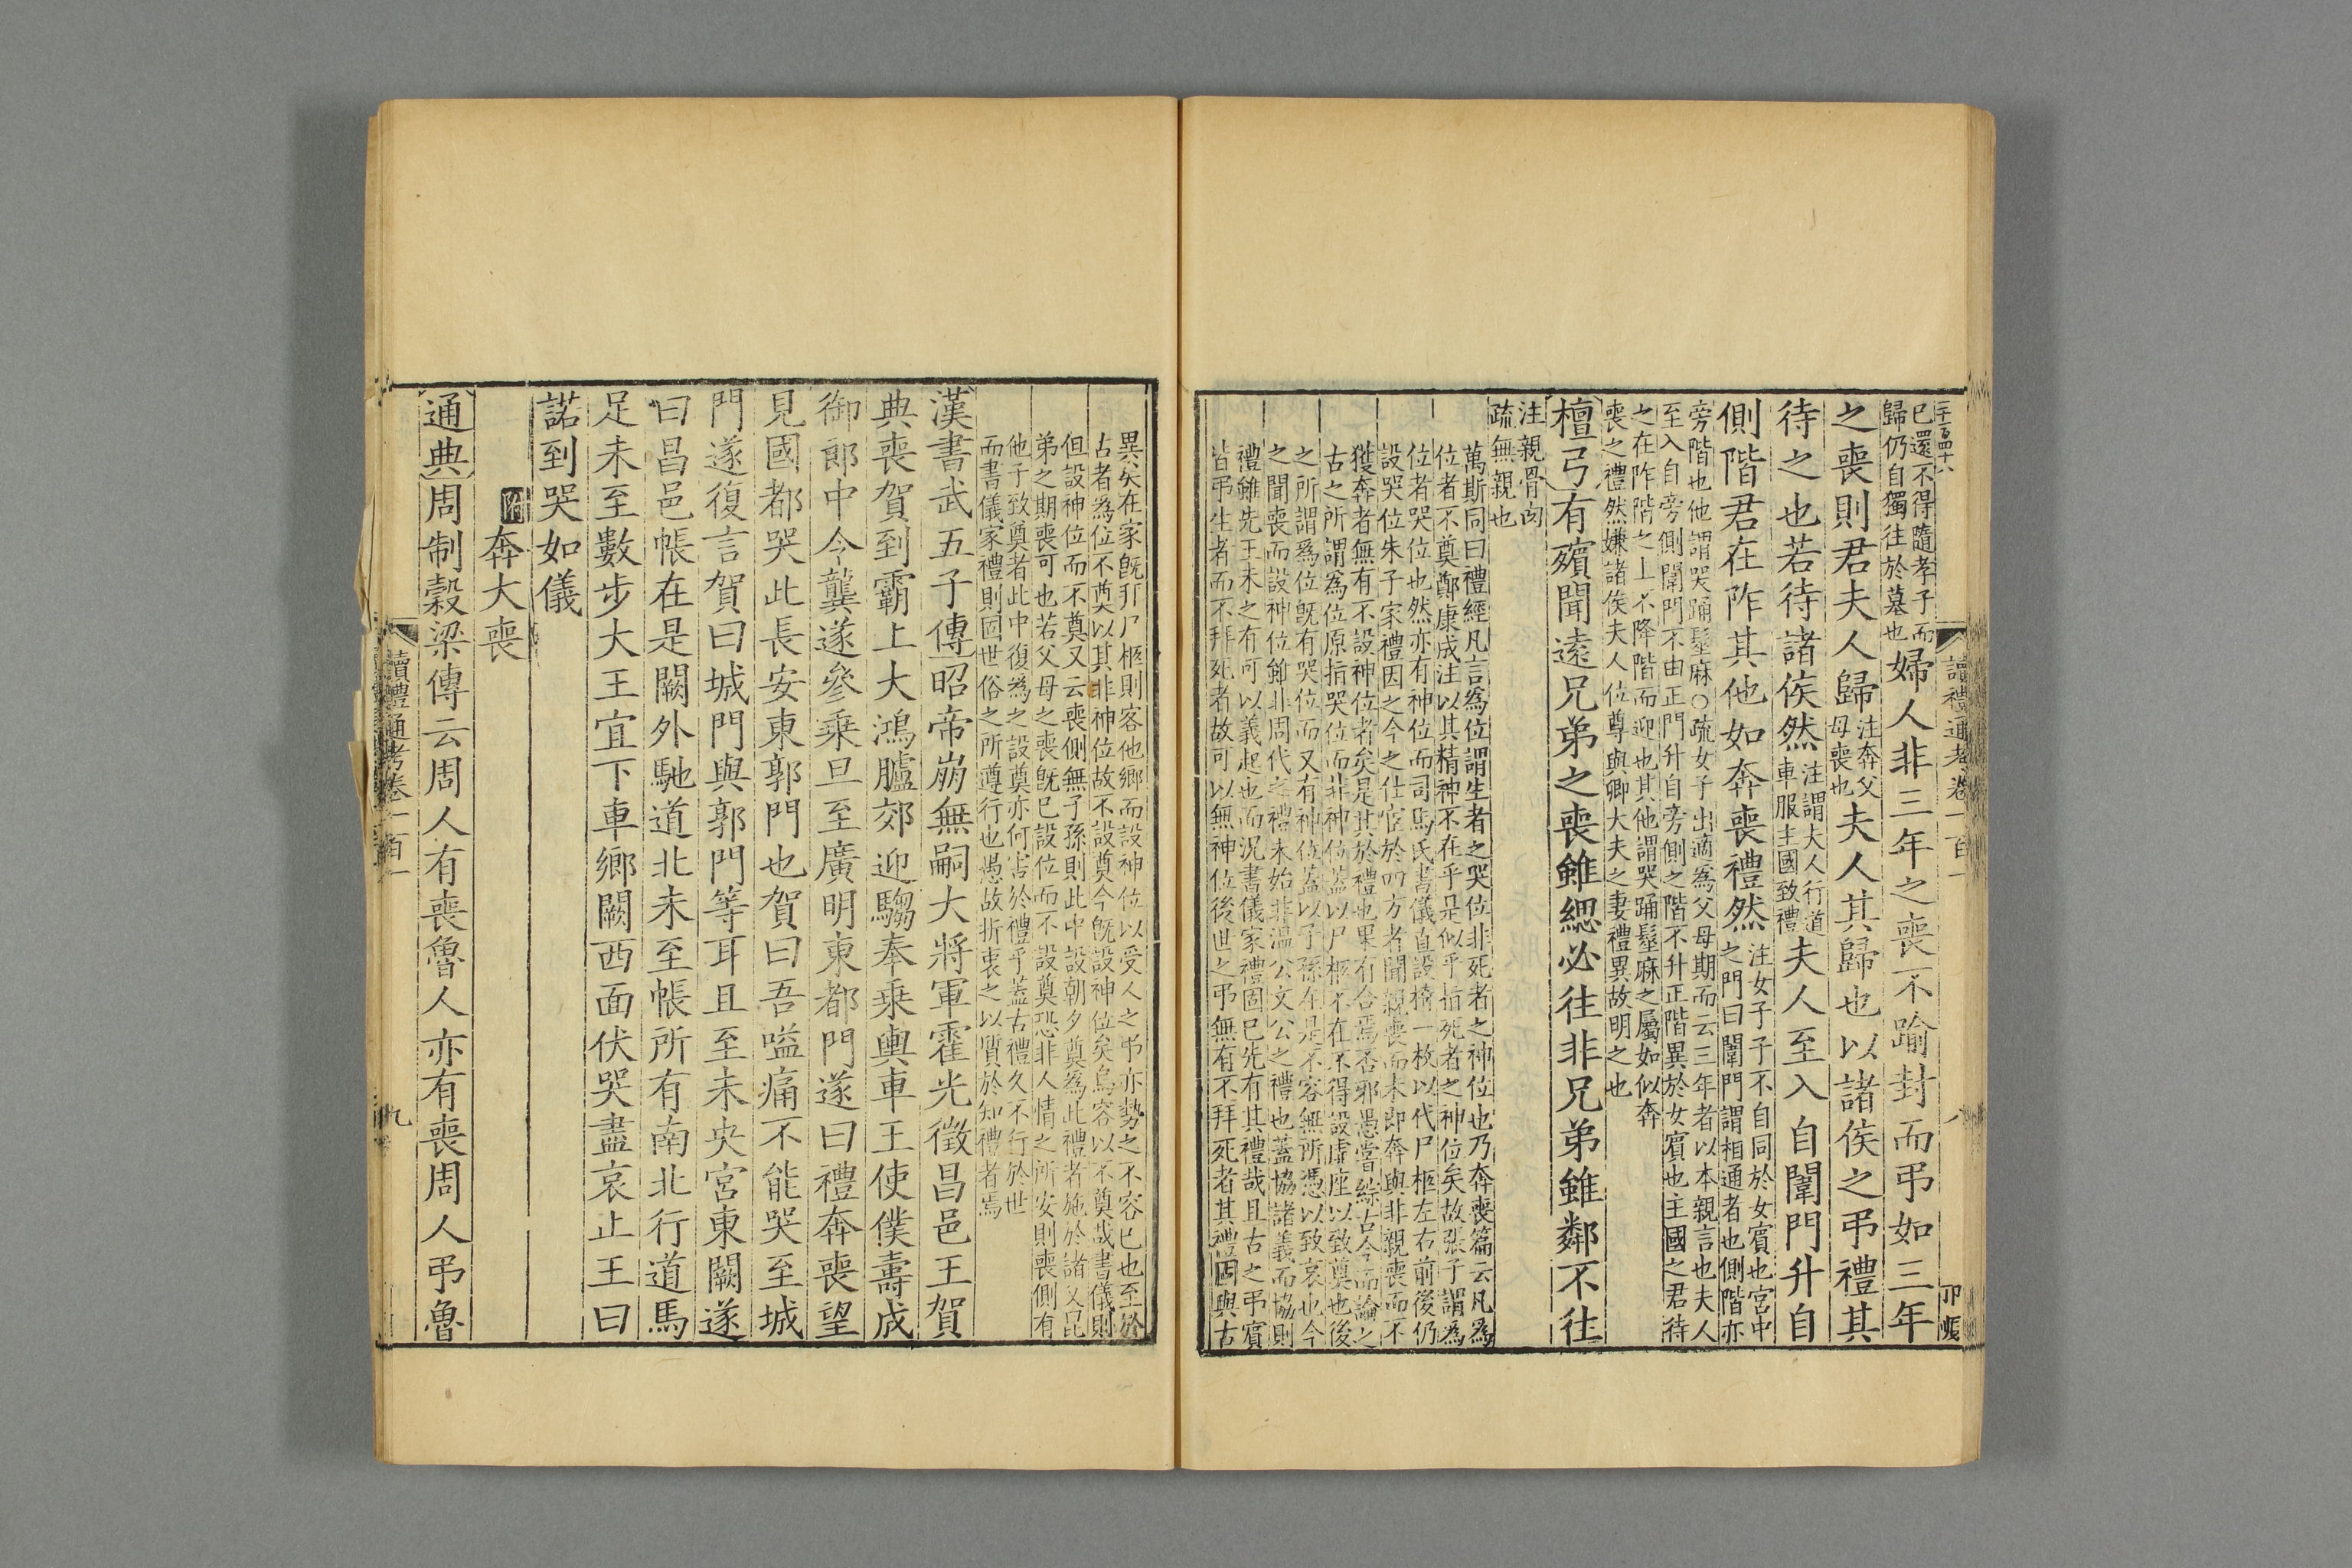 二百四十八
讀禮通考卷一百一
八
已還不得隨孝子而
歸仍自獨往於墓也
婦人非三年之喪不踰封而弔如三年
之喪則君夫人歸
注奔父
母喪也
夫人其歸也以諸侯之弔禮其
待之也若待諸侯然
注謂夫人行道
車服主國致禮
夫人至入自闈門升自
側階君在阼其他如奔喪禮然
注女子子不自同於女賓也宮中
之門曰闈門謂相通者也側階亦
旁階也他謂哭踊髽麻○疏女子出適爲父母期而云三年者以本親言也夫人
至入自旁側闈門不由正門升自旁側之階不升正階異於女賓也主國之君待
之在阼階之上不降階而迎也其他謂哭踊髽麻之屬如似奔
喪之禮然嫌諸侯夫人位尊與卿大夫之妻禮異故明之也
檀弓有殯聞遠兄弟之喪雖緦必往非兄弟雖鄰不往
注親骨肉
疏無親也
萬斯同曰禮經凡言爲位謂生者之哭位非死者之神位也乃奔喪篇云凡爲
位者不奠鄭康成注以其精神不在乎是似乎指死者之神位矣故張子謂爲
位者哭位也然亦有神位而司馬氏書儀直設椅一枚以代尸柩左右前後仍
設哭位朱子家禮因之今之仕宦於四方者聞親喪而未即奔與非親喪而不
獲奔者無有不設神位者矣是其於禮也果有合焉否邪愚嘗綜古今而論之
古之所謂爲位原指哭位而非神位蓋以尸柩不在不得設虛座以致奠也後
之所謂爲位既有哭位而又有神位蓋以子孫在是不容無所憑以致哀也今
之聞喪而設神位雖非周代之禮未始非溫公文公之禮也蓋協諸義而協則
禮雖先王未之有可以義起也而況書儀家禮固已先有其禮哉且古之弔賓
皆弔生者而不拜死者故可以無神位後世之弔無有不拜死者其禮固與古
異矣在家既非尸柩則客他鄉而設神位以受人之弔亦勢之不容已也至於
古者爲位不奠以其非神位故不設奠今既設神位矣烏容以不奠哉書儀則
但設神位而不奠又云喪側無子孫則此中設朝夕奠爲此禮者施於諸父昆
弟之期喪可也若父母之喪既已設位而不設奠恐非人情之所安則喪側有
他子致奠者此中復爲之設奠亦何害於禮乎蓋古禮久不行於世
而書儀家禮則固世俗之所遵行也愚故折衷之以質於知禮者焉
漢書武五子傳昭帝崩無嗣大將軍霍光徵昌邑王賀
典喪賀到霸上大鴻臚郊迎騶奉乘輿車王使僕壽成
御郎中令龔遂參乘旦至廣明東都門遂曰禮奔喪望
見國都哭此長安東郭門也賀曰吾嗌痛不能哭至城
門遂復言賀曰城門與郭門等耳且至未央宮東闕遂
曰昌邑帳在是闕外馳道北未至帳所有南北行道馬
足未至數步大王宜下車鄉闕西面伏哭盡哀止王曰
諾到哭如儀
附奔大喪
通典周制穀梁傳云周人有喪魯人亦有喪周人弔魯
讀禮通考卷一百一
九